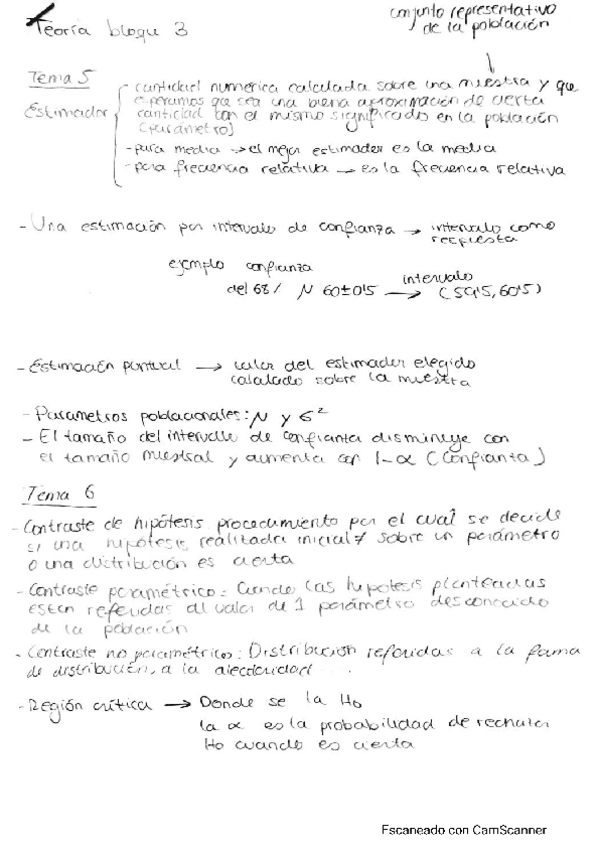 Teoría bloque 3
conjunto representativo
de la población
Tema 5
Estimador
- cantidad numerica calculada sobre una muestra y que
esperamos que sea una buena aproximación de cierta
cantidad con el mismo significado en la población
(parámetro)
- para media → el mejor estimador es la media
- para frecuencia relativa → es la frecuencia relativa
- Una estimación por intervalo de confianza → intervalo como
respuesta
ejemplo confianza
del 68% μ 60±0'5 → intervalo (59'5, 60'5)
- Estimación puntual → valor del estimador elegido
calculado sobre la muestra
- Parametros poblacionales: μ y σ²
- El tamaño del intervalo de confianza disminuye con
el tamaño muestral y aumenta con 1-α (confianza)
Tema 6
- Contraste de hipótesis procedimiento por el cual se decide
si una hipótesis realizada inicial/ sobre un parámetro
o una distribución es cierta
- Contraste paramétrico: Cuando las hipotesis planteadas
esten referidas al valor de 1 parámetro desconocido
de la población
- Contraste no paramétrico: Distribución referidas a la forma
de distribución, a la aleatoriedad ....
- Región crítica → Donde se la Ho
la α es la probabilidad de rechazar
Ho cuando es cierta
Escaneado con CamScanner